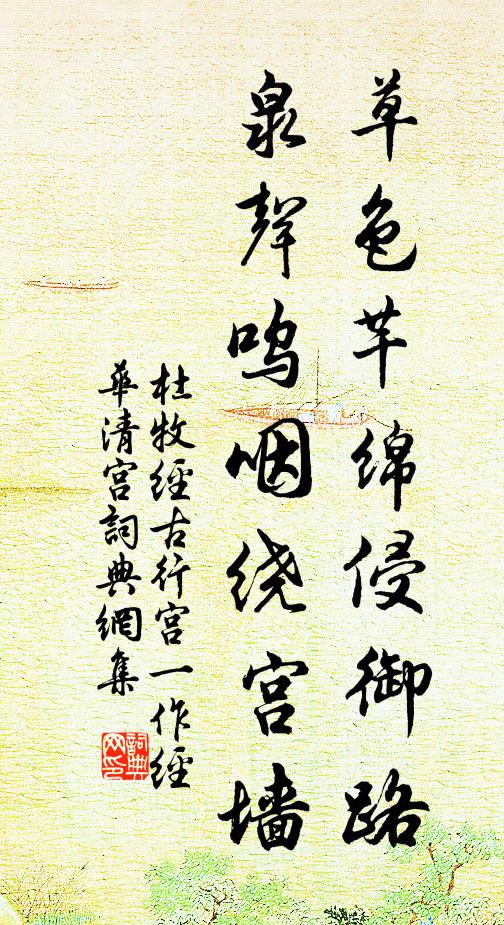 草色芊绵侵御路
泉聲鸣咽绕宫墙
杜牧經古行宫一作經
華清宫詞典網集
詞典网印